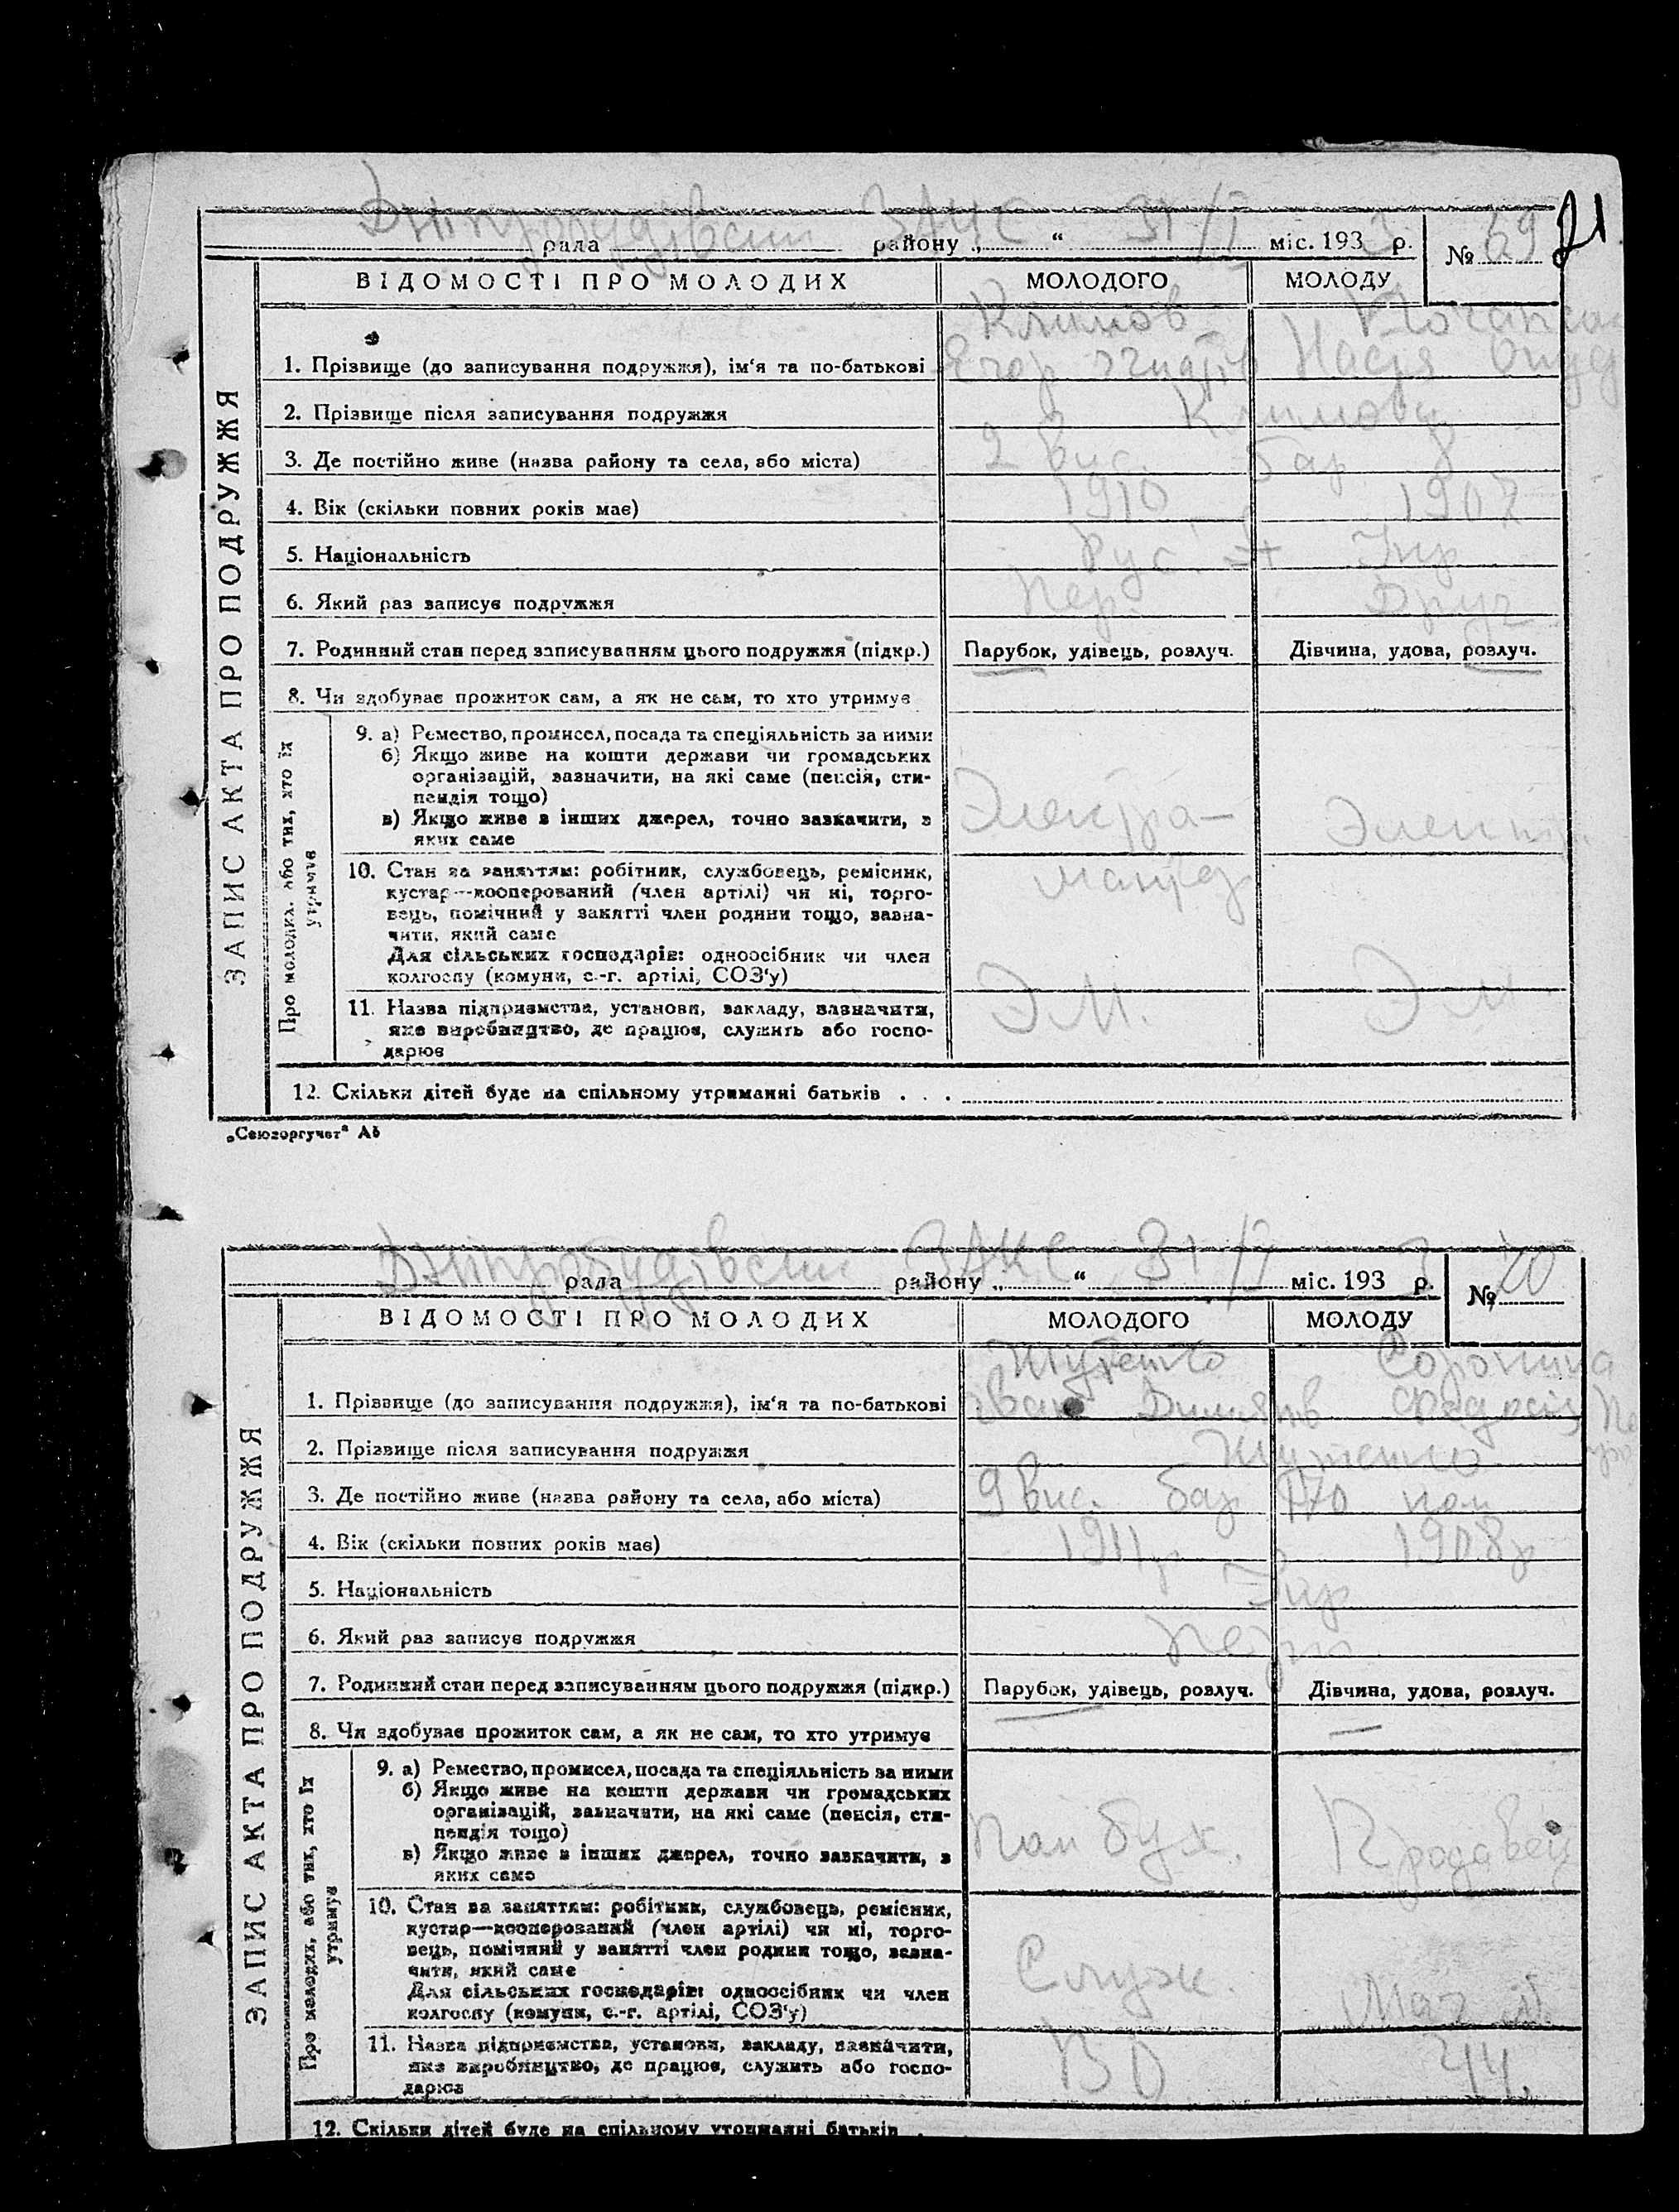 Дніпробудівський ЗАКС 31/I
рада району „ “ міс. 193 3 р. № 69 71
ВІДОМОСТІ ПРО МОЛОДИХ МОЛОДОГО МОЛОДУ
ЗАПИС АКТА ПРО ПОДРУЖЖЯ
Климов
1. Прізвище (до записування подружжя), ім‘я та по-батькові Єгор Настя
2. Прізвище після записування подружжя Климови
3. Де постійно живе (назва району та села, або міста) 2 вис. бар 8
4. Вік (скільки повних років має) 1910 1907
5. Національність Рус. Укр
6. Який раз записує подружжя Пер. Друг
7. Родинний стан перед записуванням цього подружжя (підкр.) Парубок, удівець, розлуч. Дівчина, удова, розлуч.
8. Чи здобуває прожиток сам, а як не сам, то хто утримує
Про молодих, або тих, хто їх утримує
9. а) Ремество, промисел, посада та спеціяльність за ними
б) Якщо живе на кошти держави чи громадських
організацій, зазначити, на які саме (пенсія, сти-
пендія тощо)
в) Якщо живе з інших джерел, точно зазначити, з
яких саме
Электро-
10. Стан за заняттям: робітник, службовець, ремісник,
кустар—кооперований (член артілі) чи ні, торго-
вець, помічний у занятті член родини тощо, зазна-
чити, який саме
Для сільських господарів: одноосібник чи член
колгоспу (комуни, с.-г. артілі, СОЗ‘у)
11. Назва підприємства, установи, закладу, зазначити,
яке виробництво, де працює, служить або госпо-
дарює
Э.М. Э М
12. Скільки дітей буде на спільному утриманні батьків . . .
„Союзоргучет“ А5
Дніпробудівський ЗАКС 31/I
рада району „ “ міс. 193 3 р. № 70
ВІДОМОСТІ ПРО МОЛОДИХ МОЛОДОГО МОЛОДУ
ЗАПИС АКТА ПРО ПОДРУЖЖЯ
Сорокина
1. Прізвище (до записування подружжя), ім‘я та по-батькові Іван
2. Прізвище після записування подружжя
3. Де постійно живе (назва району та села, або міста) 9 вис. бар 170
4. Вік (скільки повних років має) 1911р 1908р
5. Національність Укр
6. Який раз записує подружжя
7. Родинний стан перед записуванням цього подружжя (підкр.) Парубок, удівець, розлуч. Дівчина, удова, розлуч.
8. Чи здобуває прожиток сам, а як не сам, то хто утримує
Про молодих, або тих, хто їх утримує
9. а) Ремество, промисел, посада та спеціяльність за ними
б) Якщо живе на кошти держави чи громадських
організацій, зазначити, на які саме (пенсія, сти-
пендія тощо)
в) Якщо живе з інших джерел, точно зазначити, з
яких саме
Пом бух. Продавец
10. Стан за заняттям: робітник, службовець, ремісник,
кустар—кооперований (член артілі) чи ні, торго-
вець, помічний у занятті член родини тощо, зазна-
чити, який саме
Для сільських господарів: одноосібник чи член
колгоспу (комуни, с.-г. артілі, СОЗ‘у)
Служ Маг
11. Назва підприємства, установи, закладу, зазначити,
яке виробництво, де працює, служить або госпо-
дарює
44.
12. Скільки дітей буде на спільному утриманні батьків .